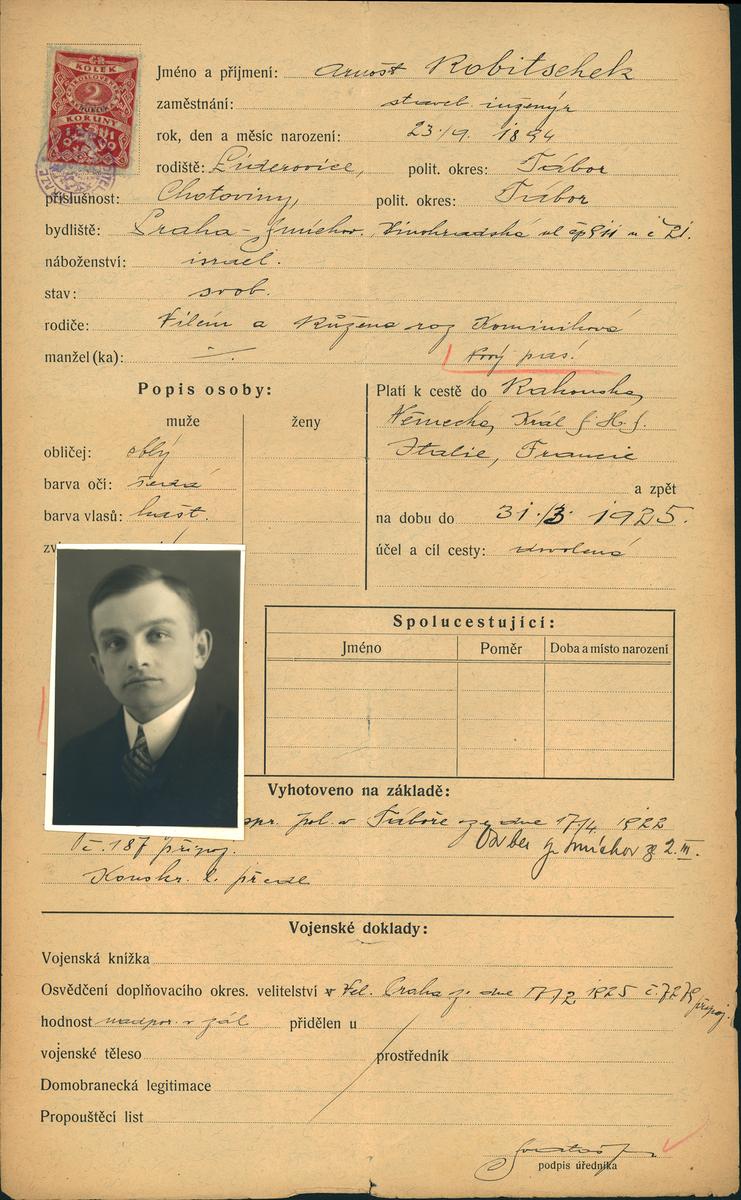 KOLEK
2
KORUNY
Jméno a příjmení: Arnošt Robitschek
zaměstnání: staveb. inženýr
rok, den a měsíc narození: 23./9. 1894
rodiště: Lüderovice, polit. okres: Tábor
příslušnost: Chotoviny, polit. okres: Tábor
bydliště: Praha-Smíchov. Vinohradská ul čp 911 n č 21.
náboženství: israel.
stav: svob.
rodiče: Vilém a Růžena roz Kominíková
manžel(ka): ./. Nový pas!
Popis osoby:
muže ženy
obličej: oblý
barva očí: šedá
barva vlasů: kašt.
Platí k cestě do Rakouska,
Německa, Král S. H. S.
Italie, Francie
a zpět
na dobu do 31./3. 1925.
účel a cíl cesty: dovolená
Spolucestující:
Jméno Poměr Doba a místo narození
Vyhotoveno na základě:
spr. pol. v Táboře ze dne 17/4 1922
č. 187 připoj. Smíchov 2. III.
Konskr. l. předl
Vojenské doklady:
Vojenská knížka
Osvědčení doplňovacího okres. velitelství v Vel. Praha ze dne 17/2 1925 č. 7279 připoj.
hodnost nadpor. v zál přidělen u
vojenské těleso prostředník
Domobranecká legitimace
Propouštěcí list
podpis úředníka